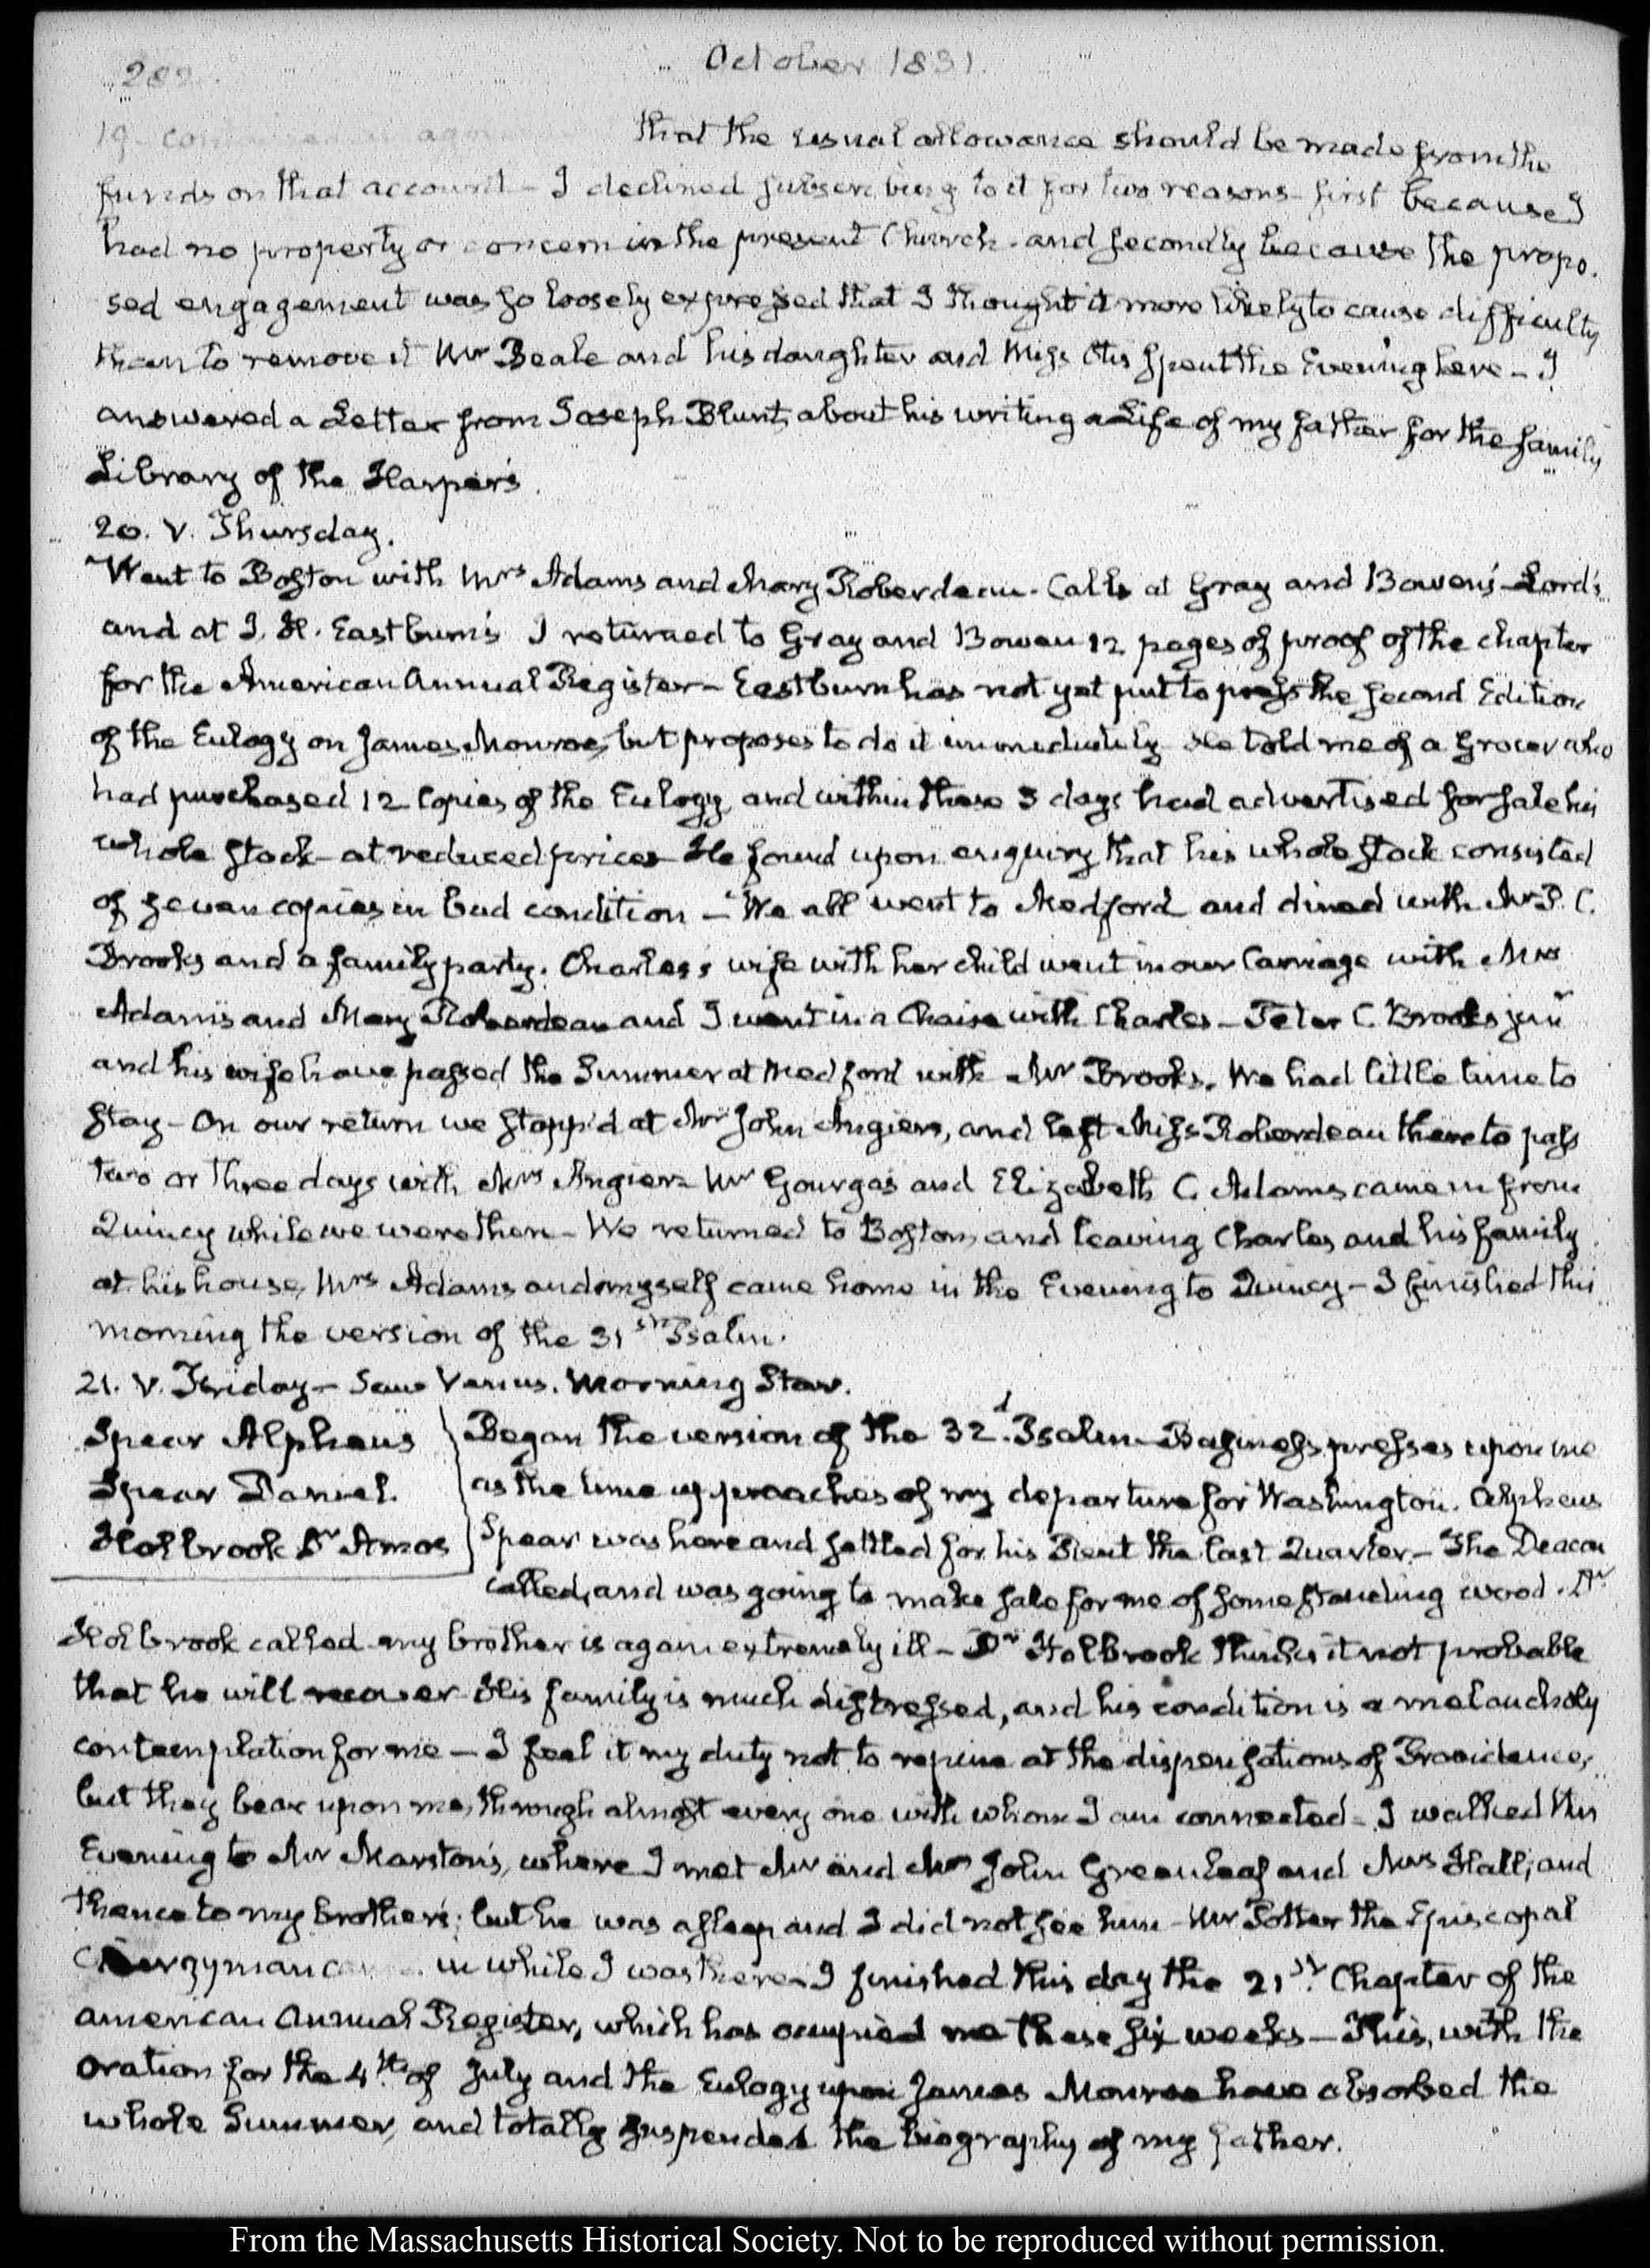 282.
October 1831.
19 continued again that the usual allowance should be made from the
funds on that account – I declined subscribing to it for two reasons – first because I
had no property or concern in the present Church – and secondly because the propo-
sed engagement was so loosely expressed that I thought it more likely to cause difficulty
than to remove it Mr Beale and his daughter and Miss Otis spent the Evening here – I
answered a Letter from Joseph Blunt, about his writing a Life of my father for the family
Library of the Harper's.
20. V. Thursday.
Went to Boston with Mrs Adams and Mary Roberdeau. Calls at Gray and Bowen's – Lord's
and at J. H. Eastburn's I returned to Gray and Bowen 12 pages of proof of the chapter
for the American Annual Register – Eastburn has not yet put to press the second Edition
of the Eulogy on James Monroe, but proposes to do it immediately He told me of a Grocer who
had purchased 12 Copies of the Eulogy, and within these 3 days had advertised for sale his
whole stock – at reduced prices – He found upon enquiry that his whole stock consisted
of seven copies in bad condition – We all went to Medford and dined with Mr P. C.
Brooks and a family party. Charles's wife with her child went in our Carriage with Mrs
Adams and Mary Roberdeau and I went in a Chaise with Charles – Peter C. Brooks junr
and his wife have passed the Summer at Medford with Mr Brooks. We had little time to
stay – On our return we stopp'd at Mr John Angier's, and left Miss Roberdeau there to pass
two or three days with Mrs Angier – Mr Gourgas and Elizabeth C. Adams came in from
Quincy while we were there – We returned to Boston, and leaving Charles and his family
at his house, Mrs Adams and myself came home in the Evening to Quincy – I finished this
morning the version of the 31st Psalm.
21. V. Friday – Saw Venus. Morning Star.
Spear Alpheus
Spear Daniel.
Holbrook Dr Amos
Began the version of the 32d. Psalm – Business presses upon me
as the time approaches of my departure for Washington. Alpheus
Spear was here and settled for his Rent the last Quarter – The Deacon
called, and was going to make sale for me of some standing wood. Dr
Holbrook called my brother is again extremely ill – Dr Holbrook thinks it not probable
that he will recover His family is much distressed, and his condition is a melancholy
contemplation for me – I feel it my duty not to repine at the dispensations of Providence,
but they bear upon me, through almost every one with whom I am connected – I walked this
Evening to Mr Marston's, where I met Mr and Mrs John Greenleaf and Mrs Hall; and
thence to my brother's; but he was asleep and I did not see him – Mr Potter the Episcopal
Clergyman in while I was there – I finished this day the 21st. Chapter of the
American Annual Register, which has occupied me these six weeks – This, with the
Oration for the 4th of July and the Eulogy upon James Monroe have absorbed the
whole Summer, and totally suspended the biography of my father.
From the Massachusetts Historical Society. Not to be reproduced without permission.